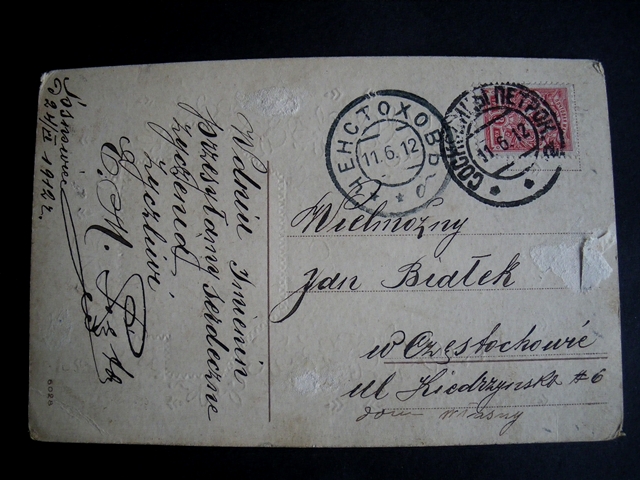 Sosnowiec
24/VI 1912 r.
W dniu Imienin
przesyłamy serdeczne
życzenia
życzliwi
ЧЕНСТОХОВЪ
11.6.12
СОСНОВИЦЫ ПЕТРОК.
11.6.12
Wielmożny
Jan Białek
w Częstochowie
ul Kiedrzynska # 6
dom własny
6026